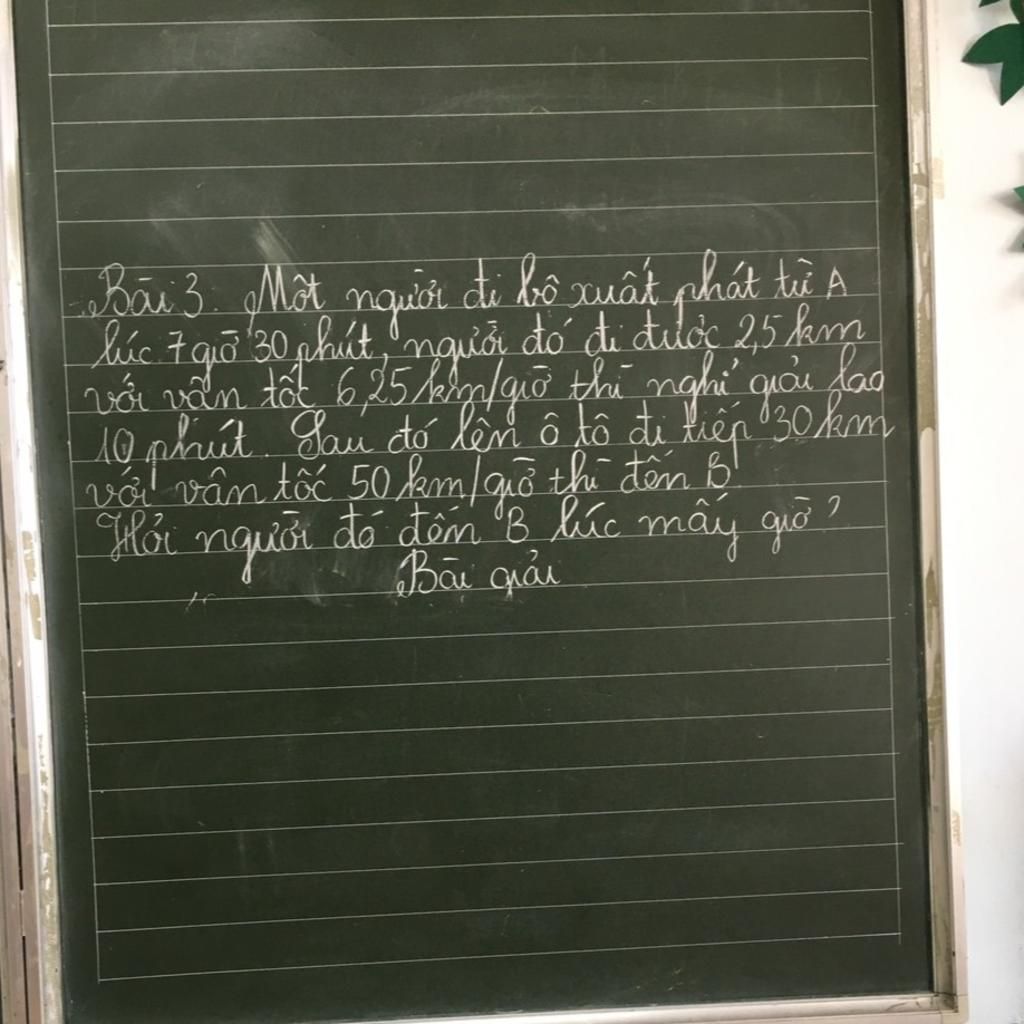 Bài 3. Một người đi bộ xuất phát từ A
lúc 7 giờ 30 phút, người đó đi được 2,5 km
với vận tốc 6,25 km/giờ thì nghỉ giải lao
10 phút. Sau đó lên ô tô đi tiếp 30 km
với vận tốc 50 km/giờ thì đến B
Hỏi người đó đến B lúc mấy giờ?
Bài giải